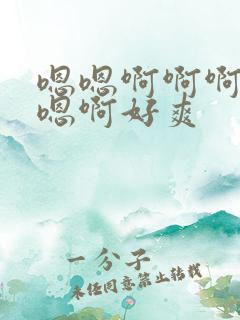 嗯嗯啊啊啊
嗯啊好爽
一分子
未经同意禁止转载